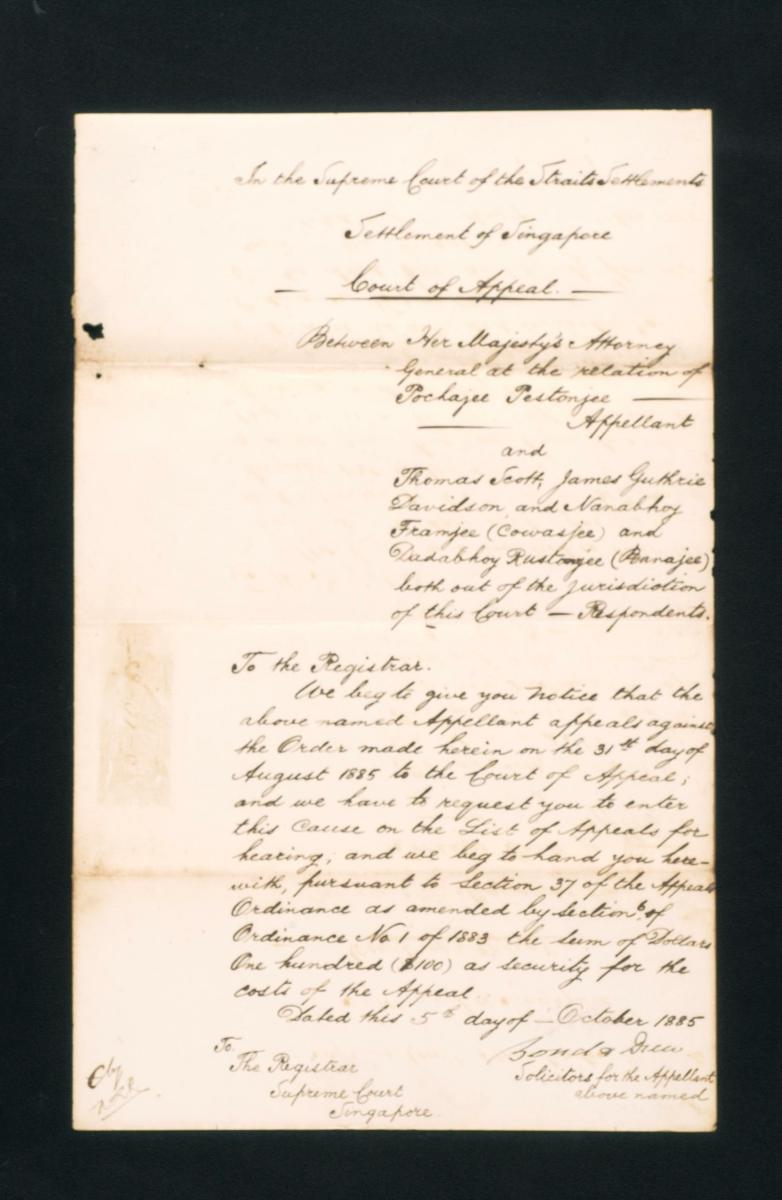 In the Supreme Court of the Straits Settlements
Settlement of Singapore
— Court of Appeal. —
Between Her Majesty's Attorney
General at the relation of
Pochajee Pestonjee —
— Appellant
and
Thomas Scott, James Guthrie
Davidson and Nanabhoy
Framjee (Cowasjee) and
Dadabhoy Rustomjee (Banajee)
both out of the jurisdiction
of this Court — Respondents.
To the Registrar.
We beg to give you notice that the
above named Appellant appeals against
the Order made herein on the 31st day of
August 1885 to the Court of Appeal;
and we have to request you to enter
this Cause on the List of Appeals for
hearing; and we beg to hand you here-
with, pursuant to Section 37 of the Appeals
Ordinance as amended by section 6 of
Ordinance No 1 of 1883 the sum of Dollars
One hundred ($100) as security for the
costs of the Appeal
Dated this 5th day of — October 1885
Bond & Drew
Solicitors for the Appellant
above named
To
The Registrar
Supreme Court
Singapore.